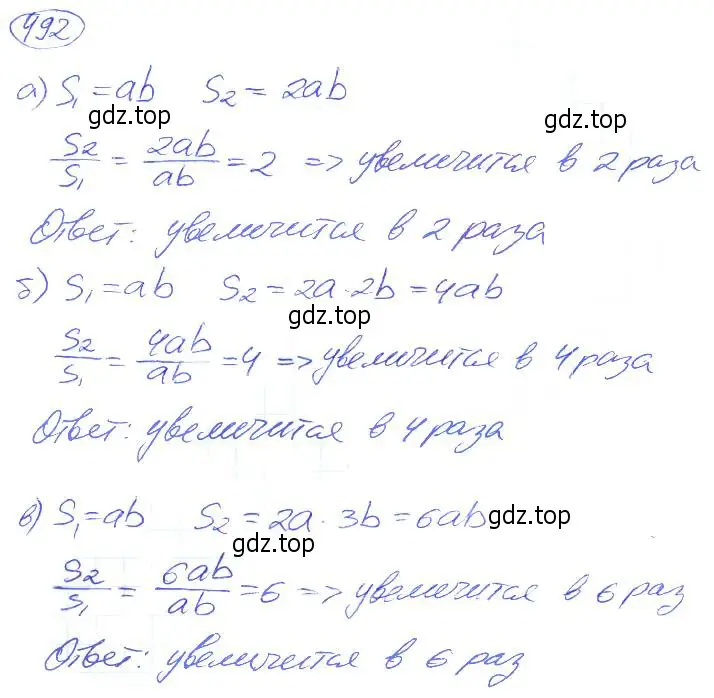 492
а) S₁ = ab S₂ = 2ab
gdz.top gdz.top
S₂/S₁ = 2ab/ab = 2 => увеличится в 2 раза
Ответ: увеличится в 2 раза
б) S₁ = ab S₂ = 2a · 2b = 4ab
gdz.top
S₂/S₁ = 4ab/ab = 4 => увеличится в 4 раза
Ответ: увеличится в 4 раза
в) S₁ = ab S₂ = 2a · 3b = 6ab
gdz.top
gdz.top
S₂/S₁ = 6ab/ab = 6 => увеличится в 6 раз
Ответ: увеличится в 6 раз